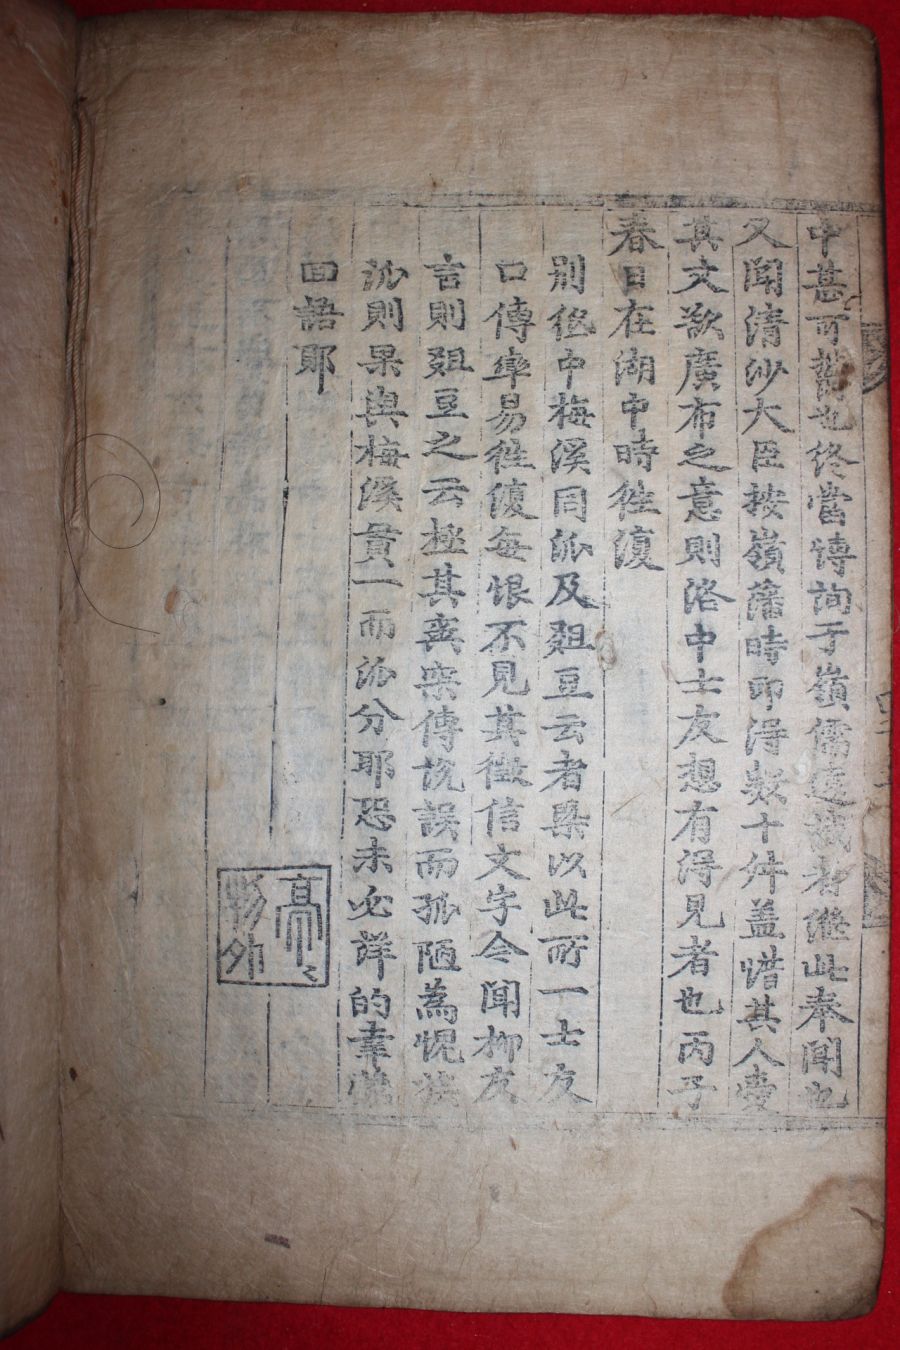 中甚可鬱也終當博詢于嶺儒遠識者繼此奉聞也
又聞清沙大臣按嶺藩時印得數十件盖惜其人愛
其文欲廣布之意則洛中士友想有得見者也丙子
春日在湖中時徃復
別紙中梅溪同派及俎豆云者槩以此所一士友
口傳率易徃復每恨不見其徵信文字今聞柳友
言則俎豆之云極其丧宲傳說誤而孤陋為愧
派則果與梅溪貫一而派分耶恐未必詳的幸
面語耶
亭
物外